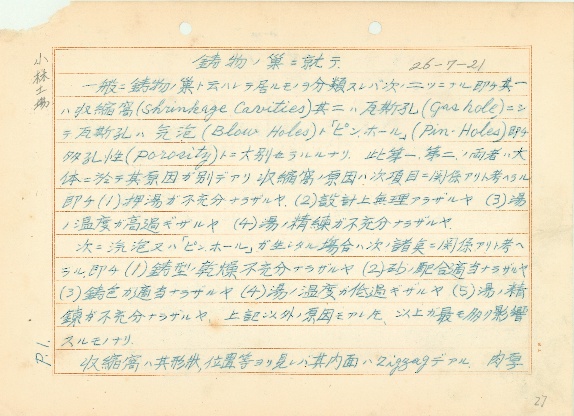 小林工場
鋳物ノ巣ニ就テ
26-7-21
一般ニ鋳物ノ巣ト云ハレテ居ルモノヲ分類スレバ次ノ二ツニナル即チ其一
ハ収縮窩(Shrinkage Cavities)其二ハ瓦斯孔(Gas hole)ニシ
テ瓦斯孔ハ気泡(Blow Holes)ト「ピンホール」(Pin-Holes)即チ
多孔性(Porosity)トニ大別セラルルナリ. 此第一、第二ノ両者ハ大
体ニ於テ其原因ガ別デアリ収縮窩ノ原因ハ次項目ニ関係アリト考ヘラル
即チ(1)押湯ガ不充分ナラザルヤ.(2)設計上無理アラザルヤ (3)湯
ノ温度ガ高過ギザルヤ (4)湯ノ精練ガ不充分ナラザルヤ
次ニ気泡又ハ「ピンホール」ガ生ジタル場合ハ次ノ諸点ニ関係アリト考ヘ
ラル即チ(1)鋳型ノ乾燥不充分ナラザルヤ (2)砂ノ配合適当ナラザルヤ
(3)鋳色ガ適当ナラザルヤ (4)湯ノ温度ガ低過ギザルヤ (5)湯ノ精
錬ガ不充分ナラザルヤ、上記以外ノ原因モアレ共、以上ガ最モ多ク影響
スルモノナリ.
収縮窩ハ其形状、位置等ヨリ見レバ其内面ハZigzagデアル. 肉厚
P.1.
27